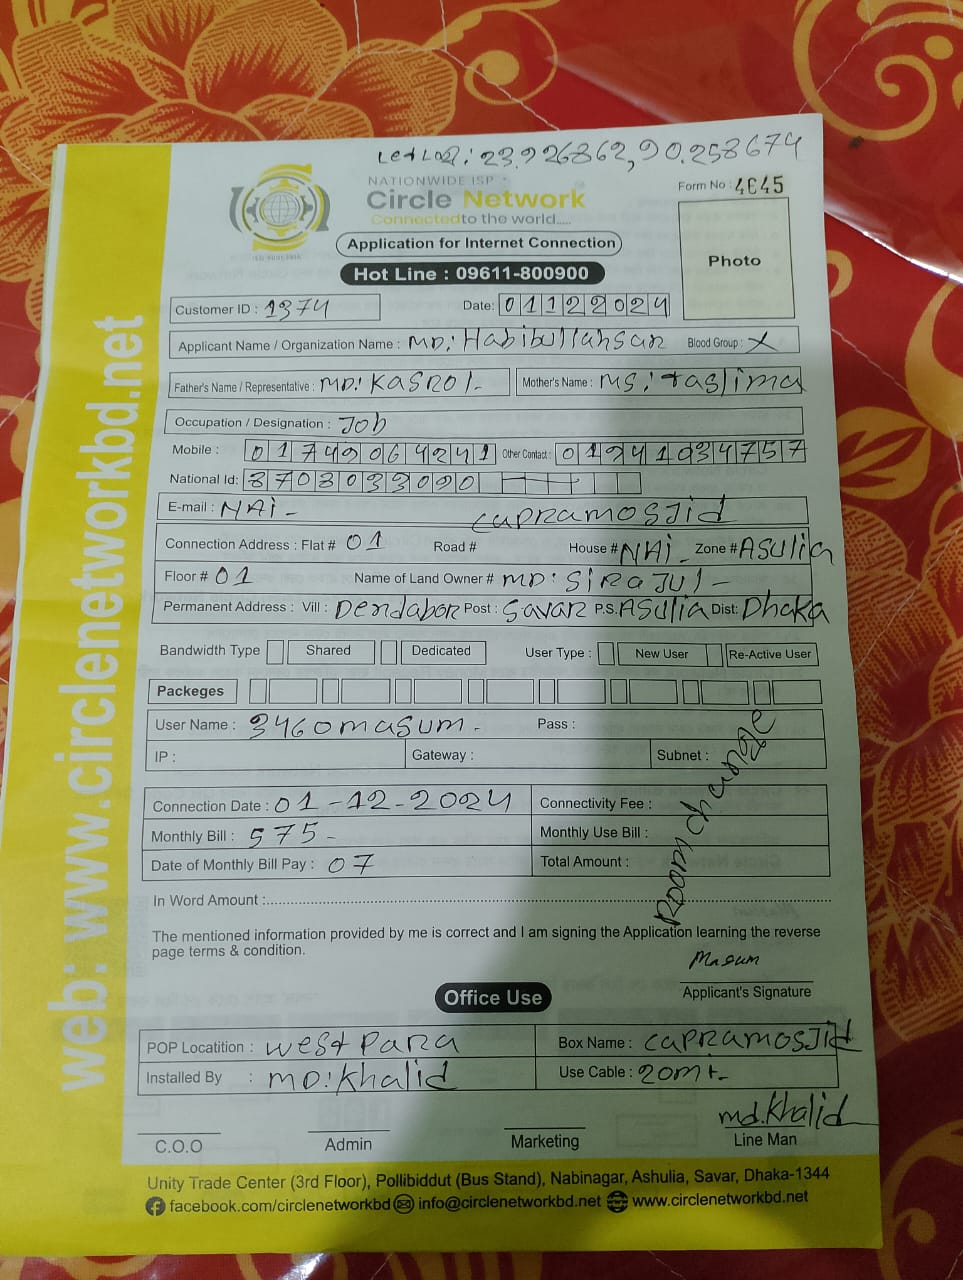 Let Log: 23.926862, 90.258674
NATIONWIDE ISP
Circle Network
Connected to the world.....
Form No : 4645
Application for Internet Connection
Photo
Hot Line : 09611-800900
Customer ID : 1374 Date: 01122024
Applicant Name / Organization Name : MD: Habibullahsar Blood Group : X
Father's Name / Representative : MD: KASRol- Mother's Name : MS: taslima
Occupation / Designation : Job
Mobile : 01749064241 Other Contact : 01941034757
National Id: 3703033090
E-mail : NAi -
CAPRAMOSJid
Connection Address : Flat # 01 Road # House # NAi - Zone # ASulia
Floor # 01 Name of Land Owner # MD: SiRAJUl -
Permanent Address : Vill : Dendabor Post : Savar P.S. ASulia Dist: Dhaka
Bandwidth Type Shared Dedicated User Type : New User Re-Active User
Packeges
User Name : 3460masum - Pass :
IP : Gateway : Subnet :
Room change
Connection Date : 01-12-2024 Connectivity Fee :
Monthly Bill : 575- Monthly Use Bill :
Date of Monthly Bill Pay : 07 Total Amount :
In Word Amount :
The mentioned information provided by me is correct and I am signing the Application learning the reverse
page terms & condition.
Masum
Applicant's Signature
Office Use
POP Locatition : West PaRa Box Name : CAPRAMOSJid
Installed By : MD: Khalid Use Cable : 20mt-
md. Khalid
C.O.O Admin Marketing Line Man
Unity Trade Center (3rd Floor), Pollibiddut (Bus Stand), Nabinagar, Ashulia, Savar, Dhaka-1344
facebook.com/circlenetworkbd info@circlenetworkbd.net www.circlenetworkbd.net
web: www.circlenetworkbd.net